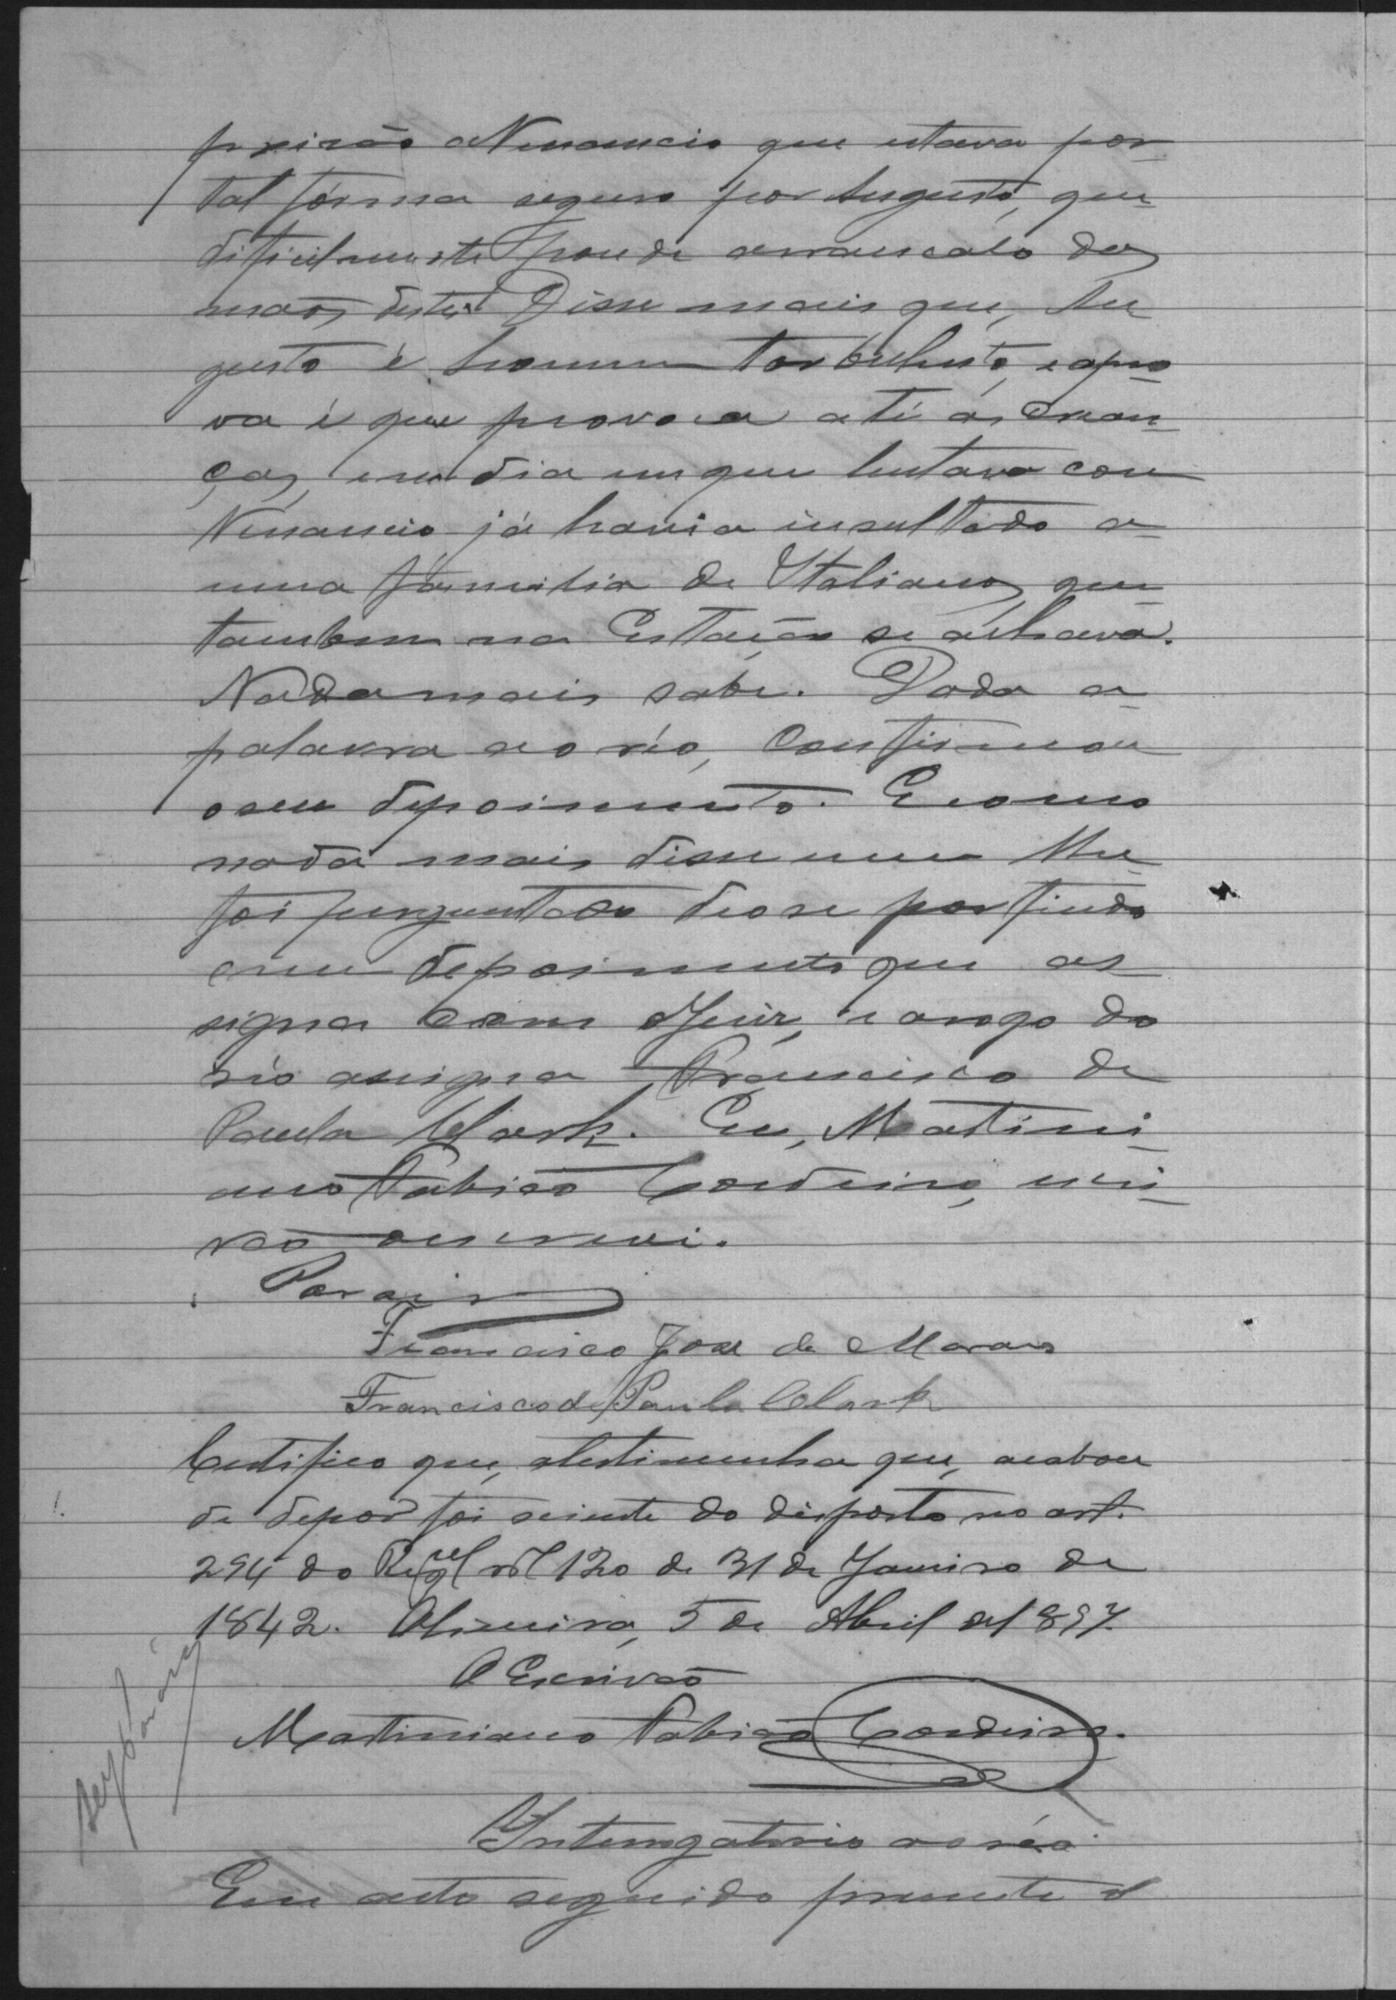 prizão a Venancio que estava por
tal fórma seguro por Augusto, que
dificilmente poude arrancalo das
mãos deste. Disse mais que, Au
gusto é homem torbulento, e a pro
va é que provoca até ás crean
ças, e no dia em que lutava com
Venancio já havia insultado a
uma familia de Italianos, que
tambem na Estação se achava.
Nada mais sabe. Dada a
palavra ao réo, confirmou
o seu depoimento. E como
nada mais disse nem lhe
foi perguntado deo-se por findo
este depoimento que as
signa com o Juiz, e a rogo do
réo assigna Francisco de
Paula Clark. Eu, Martini
ano Fabião Cordeiro, escri
vão o escrevi.
Francisco José de Moraes
Francisco de Paula Clark
Certifico que, a testimunha que, acabou
de depôr foi sciente do disposto no art.
294 do Regul nº 120 de 31 de Janeiro de
1842. 5 de Abril de 1897.
O Escrivão
Martiniano Fabião Cordeiro.
Interrogatorio ao réo
Em acto seguido presente o